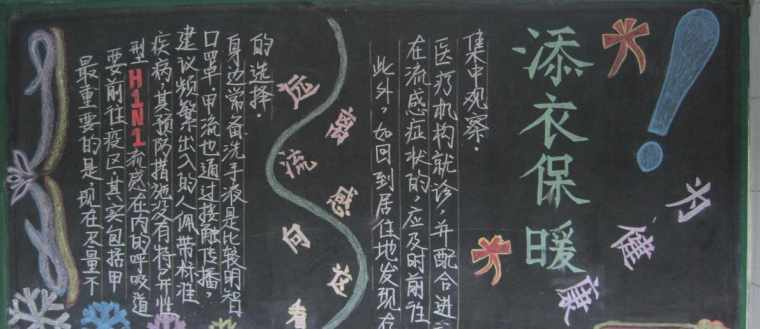 最重要的是,现在尽量不
要前往疫区,其实包括甲
型H1N1流感在内的呼吸道
疾病,其预防措施没有特异性
建议频繁出入的人佩带标准
口罩,甲流也通过接触传播,
身边常备洗手液是比较明智
的选择.
远离流感向这看
此外,如回到居住地发现存
在流感症状的,应及时前往
医疗机构就诊,并配合进
集中观察.
添衣保暖
为健康